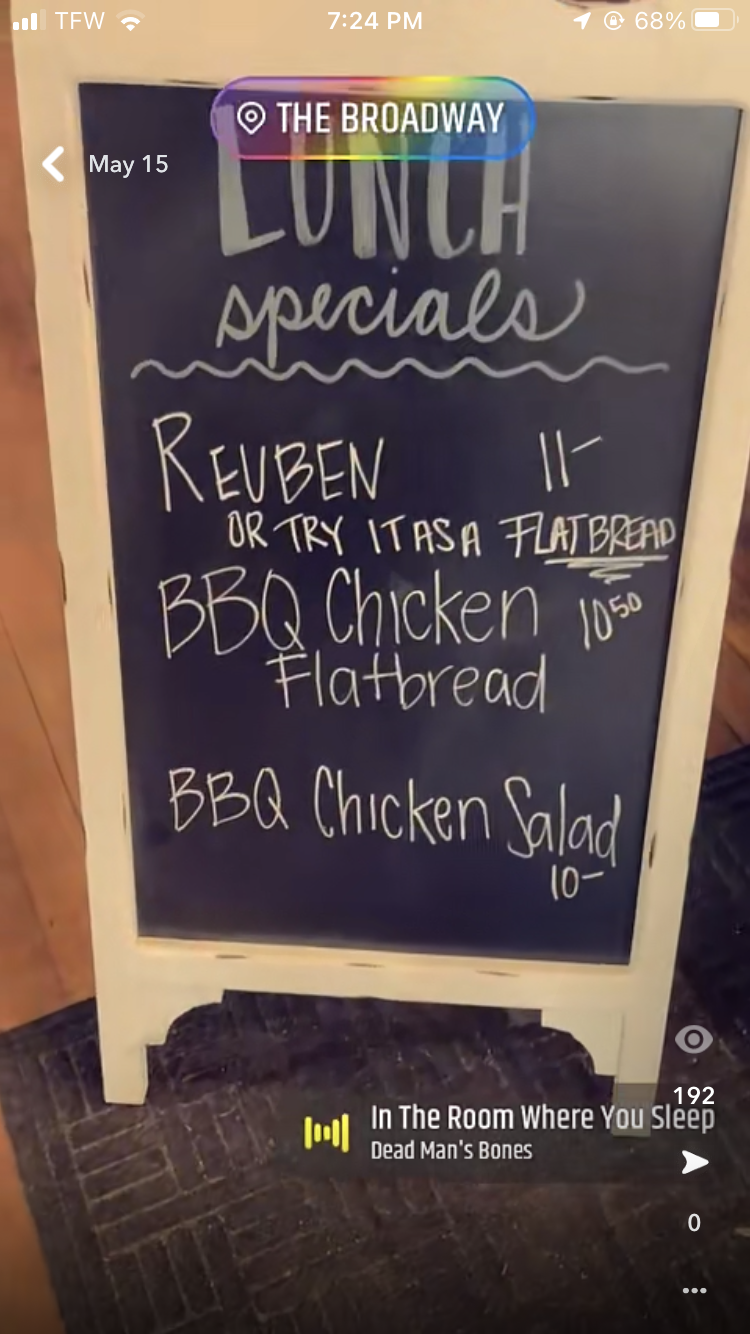 TFW
7:24 PM
68%
THE BROADWAY
May 15
LUNCH
specials
REUBEN 11-
OR TRY IT AS A FLATBREAD
BBQ Chicken 10⁵⁰
Flatbread
BBQ Chicken Salad
10-
192
In The Room Where You Sleep
Dead Man's Bones
0